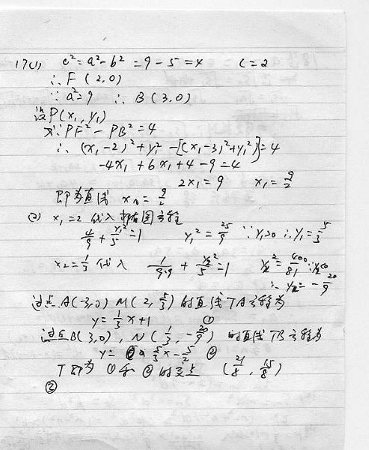 17(1) c²=a²-b²=9-5=4 c=2
∴F(2,0)
∵a²=9 ∴B(3,0)
设P(x₁,y₁)
又∵PF²-PB²=4
∴(x₁-2)²+y₁²-[(x₁-3)²+y₁²]=4
-4x₁+6x₁+4-9=4
2x₁=9 x₁=9/2
即为直线 x=9/2
(2) x₁=2 代入椭圆方程
4/9+y₁²/5=1 y₁²=25/9 ∵y₁>0 ∴y₁=5/3
x₂=1/3 代入 1/9·9+y₂²/5=1 y₂²=400/81 ∵y₂<0
∴y₂=-20/9
过点A(-3,0) M(2,5/3)的直线TA方程为
y=1/3x+1 ①
过点B(3,0),N(1/3,-20/9)的直线TB方程为
y=5/6x-5/2 ②
T即为①和②的交点 (21/8,15/8)
②